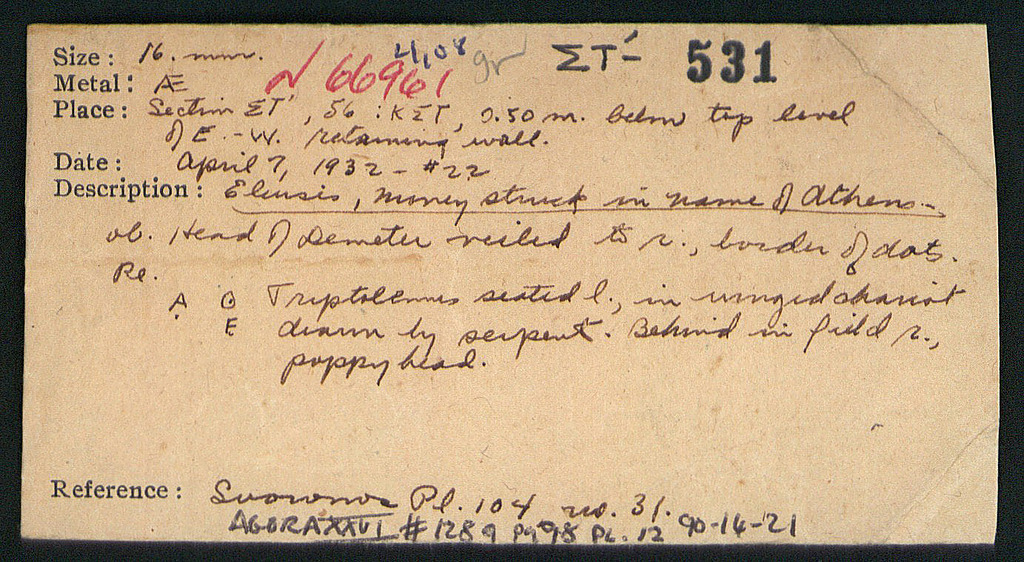 Size : 16. mm. 4,08 gr ΣΤ´- 531
Metal : Æ N 66961
Place : Section ΣΤ´, 56 : ΚΣΤ, 0.50 m. below top level
of E.-W. retaining wall.
Date : April 7, 1932 - #22
Description : Eleusis, money struck in name of Athens-
ob. Head of Demeter veiled to r., border of dots.
Re.
A Θ Triptolemus seated l., in winged chariot
E drawn by serpent. Behind in field r.,
poppy head.
Reference : Svoronos Pl. 104 no. 31.
AGORA XXVI #128 g Pg 98 PL. 12 90-16-21